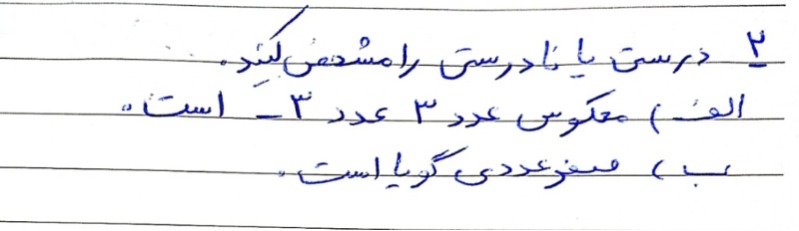 ۲ درستی یا نادرستی را مشخص کنید.
الف) معکوس عدد ۳ عدد ۳- است.
ب) صفر عددی گویا است.